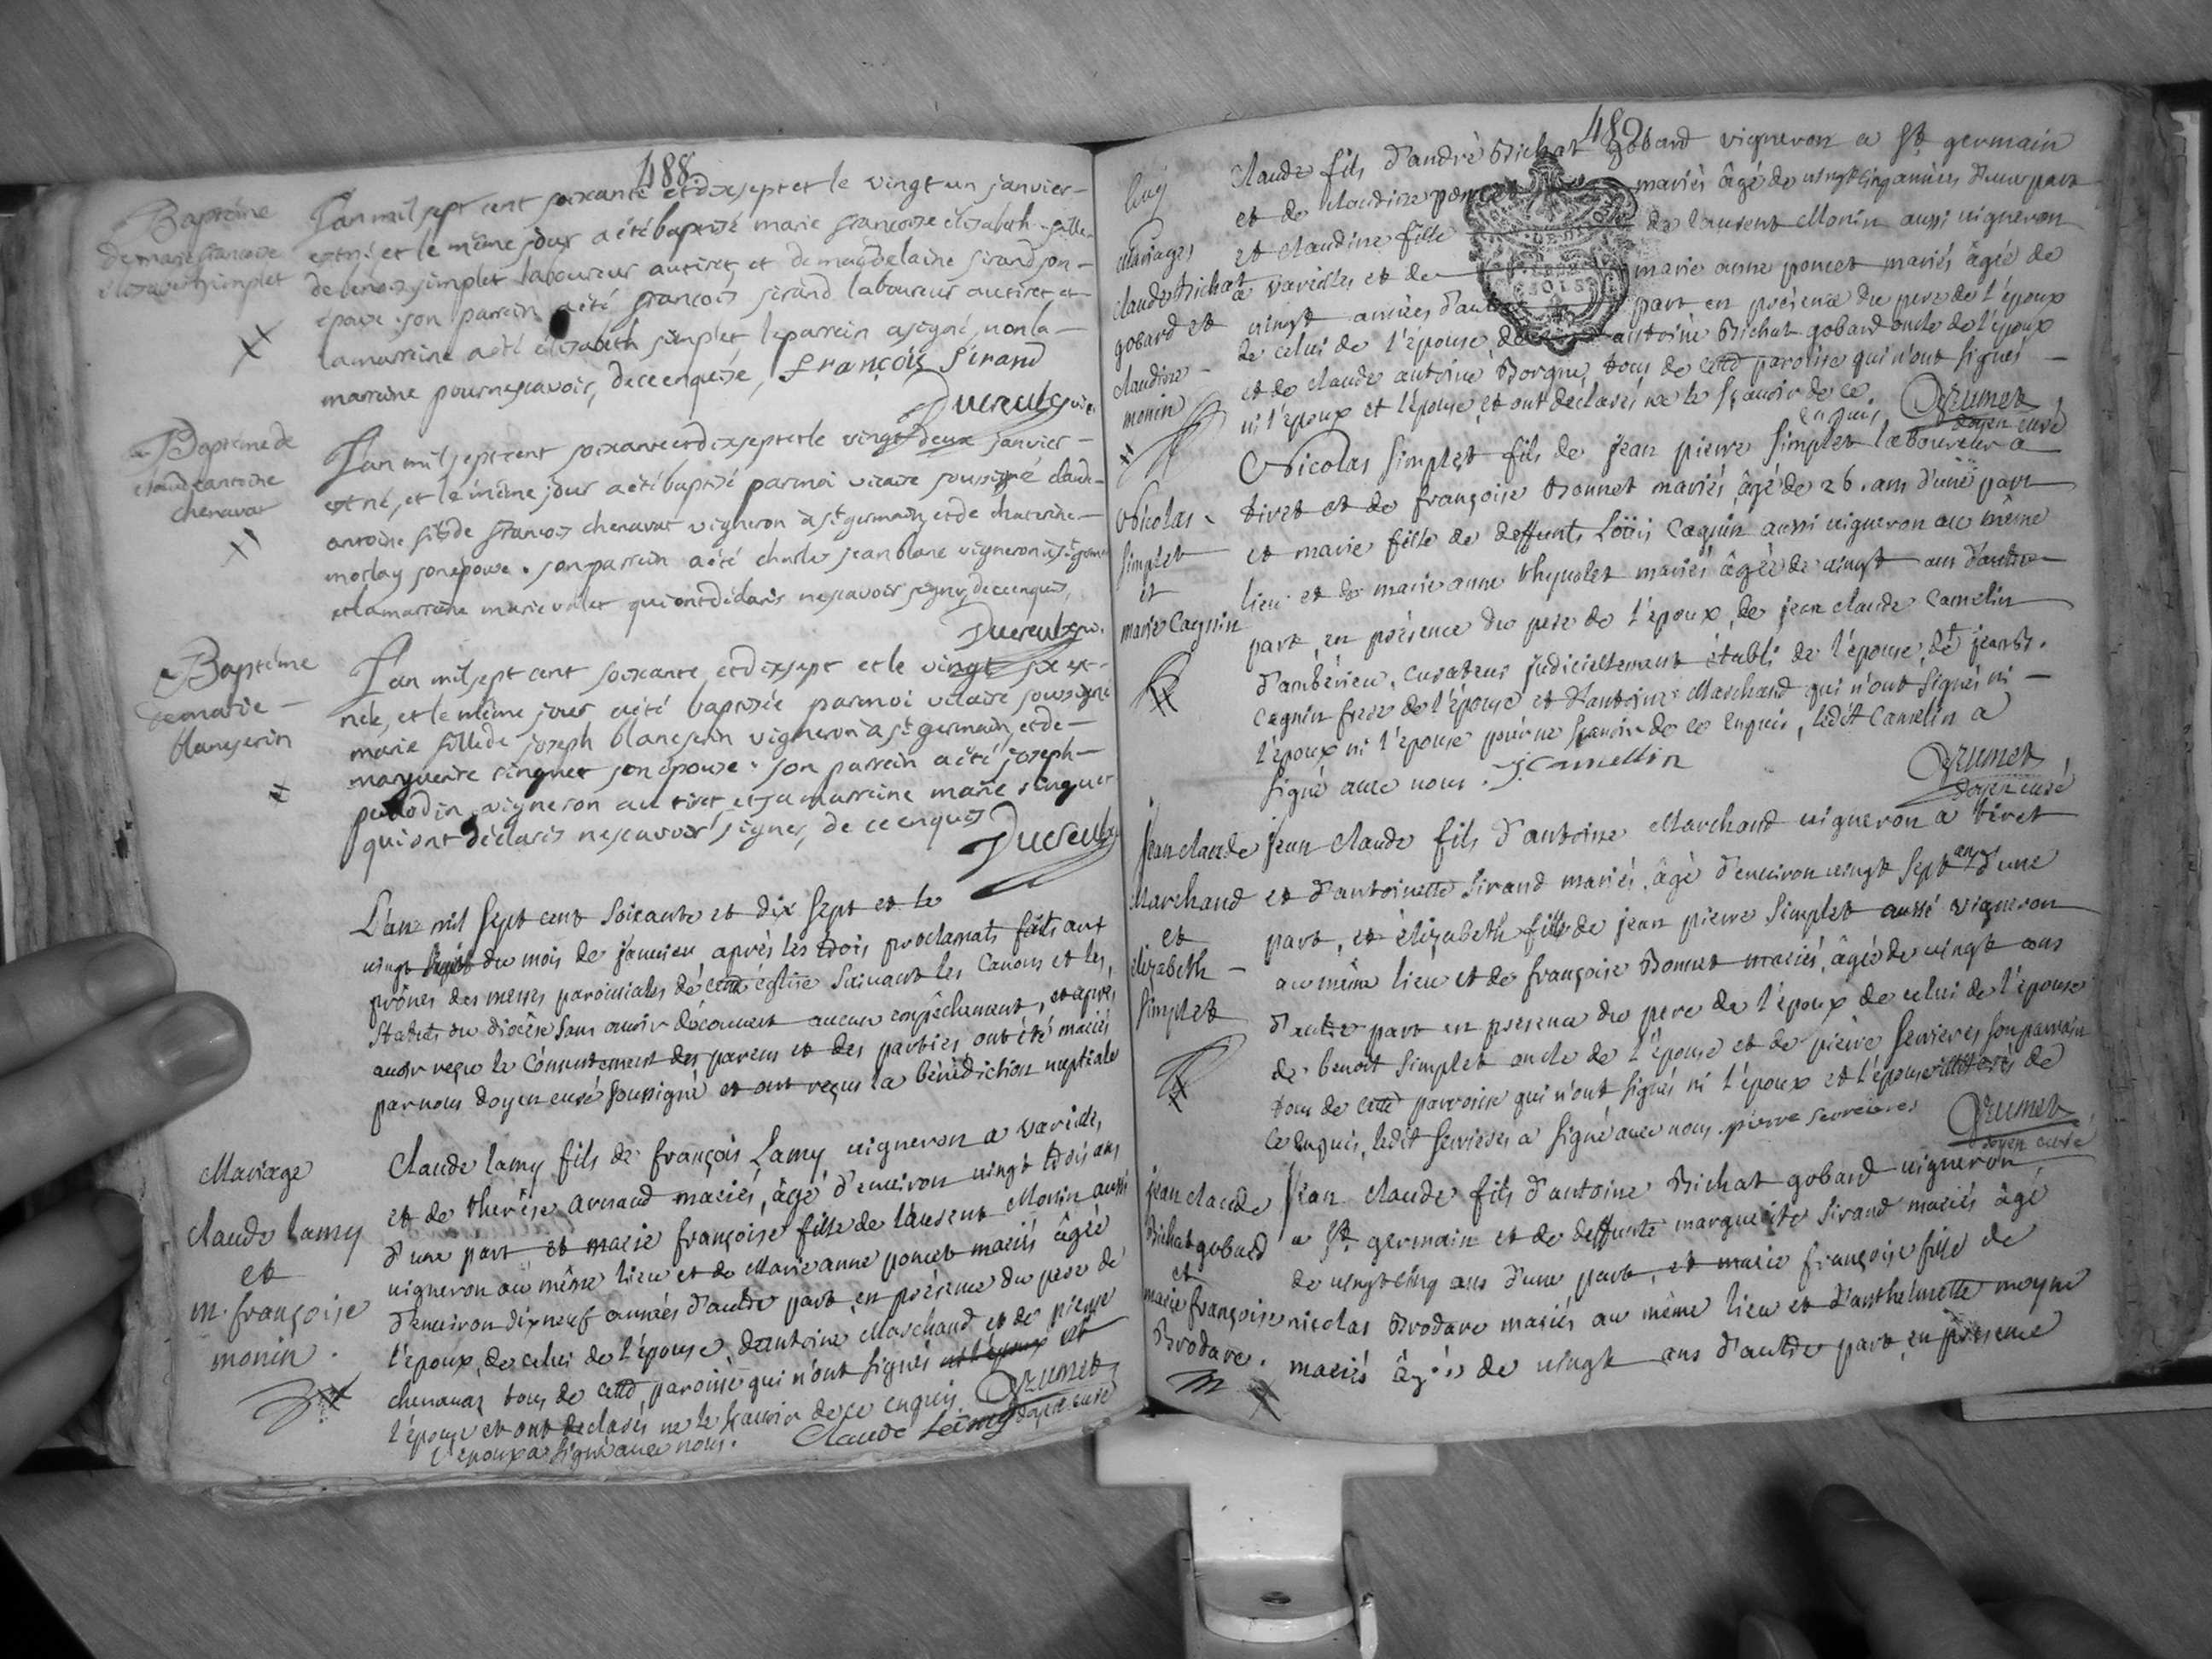 488
Baptême
de marie francoise
elisabeth simplet
L'an mil sept cent soixante et dix sept et le vingt un janvier
est né et le même jour a été baptisé marie françoise elisabeth fille
de benoit simplet laboureur au tiret et de magdelaine sirand son
épouse. son parrein a été françois sirand laboureur au tiret et
la marreine a été élisabeth simplet le parrein a signé, non la
marreine pour ne scavoir, de ce enquise, françois Sirand
Ducreulx
Baptême de
claude antoine
chenavat
L'an mil sept cent soixante et dix sept et le vingt deux janvier
est né, et le même jour a été baptisé par moi vicaire soussigné claude
antoine fils de françois chenavat vigneron à st germain, et de chaterine
morlay son épouse. son parrein a été charle jean blanc vigneron à st germain
et la marreine marie volet qui ont déclarés ne scavoir signer, de ce enquis,
Ducreulx
Baptême
de marie
blancserin
L'an mil sept cent soixante et dix sept et le vingt six est
née, et le même jour a été baptisée par moi vicaire soussigné
marie fille de joseph blancserin vigneron à st germain, et de
marguerite singuet son épouse. son parrein a été joseph
vigneron au tiret, et sa marreine marie singuet
qui ont déclarés ne scavoir signer, de ce enquis
Ducreulx
L'an mil sept cent soixante et dix sept et le
vingt du mois de janvier, après les trois proclamats faits aux
prônes des messes paroissiales de cette église suivant les Canons et les
statuts du diocèse sans avoir découvert aucun empêchement, et après
avoir reçu le consentement des parens et des parties ont été mariés
par nous doyen curé soussigné et ont reçus la bénédiction nuptiale
Mariage
claude lamy
et
m. françoise
monin.
Claude lamy fils de françois Lamy vigneron a vareilles
et de thérèse arnaud mariés, âgé d'environ vingt trois ans
d'une part et marie françoise fille de laurent Monin aussi
vigneron au même lieu et de Marie anne poncet mariés âgée
d'environ dix neuf années d'autre part, en présence du pere de
l'époux, de celui de l'épouse, d'antoine Marchand et de pierre
chenavaz tous de cette paroisse qui n'ont signés ni l'époux et
l'épouse et ont declarés ne le sçavoir de ce enquis. Drumet
l'époux a signé avec nous. Claude Lamy doyen curé
489
mariages
claude Bichat
gobard et
claudine
monin
Claude fils d'andré Bichat gobard vigneron a St germain
et de claudine poncet mariés âgé de vingt cinq années d'une part
et claudine fille de laurent Monin aussi vigneron
a vareilles et de marie anne poncet mariés âgée de
vingt années d'autre part en présence du pere de l'époux
de celui de l'épouse, antoine Bichat gobard oncle de l'époux
et de claude antoine Borgne, tous de cette paroisse qui n'ont signés
ni l'époux et l'épouse et ont déclarés ne le sçavoir de ce
enquis Drumet
doyen curé
Nicolas
simplet
et
marie Cagnin
Nicolas simplet fils de jean pierre simplet laboureur a
tiret et de françoise Bonnet mariés âgé de 26. ans d'une part
et marie fille de deffunts Loüis Cagnin aussi vigneron au même
lieu et de marie anne mariés âgée de vingt ans d'autre
part, en présence du père de l'époux, de jean claude Camelin
d'ambérieu, Curateur judiciellement établi de l'épouse, de jean B.
Cagnin frere de l'épouse et d'antoine Marchand qui n'ont signés ni
l'époux ni l'épouse pour ne sçavoir de ce enquis, ledit Camelin a
signé avec nous. J. Camellin
Drumet
doyen curé
jean claude
Marchand
et
elizabeth
simplet
jean claude fils d'antoine Marchand vigneron a tiret
et d'antoinette Sirand mariés, âgé d'environ vingt sept ans d'une
part, et élizabeth fille de jean pierre simplet aussi vigneron
au même lieu et de françoise Bonnet mariés, âgée de vingt ans
d'autre part en présence du pere de l'époux de celui de l'épouse
de benoit simplet oncle de l'épouse et de pierre serrieres son parrain
tous de cette parroisse qui n'ont signés ni l'époux et l'épouse illiterés de
ce enquis, ledit serrieres a signé avec nous. pierre serrieres
Drumet
doyen curé
jean claude
Bichat gobard
et
marie françoise
Brodare.
jean claude fils d'antoine Bichat gobard vigneron
a St germain et de deffunte marguerite Sirand mariés âgé
de vingt cinq ans d'une part, et marie françoise fille de
nicolas Brodare mariés au même lieu et d'anthelmette moyne
mariés âgée de vingt ans d'autre part, en présence